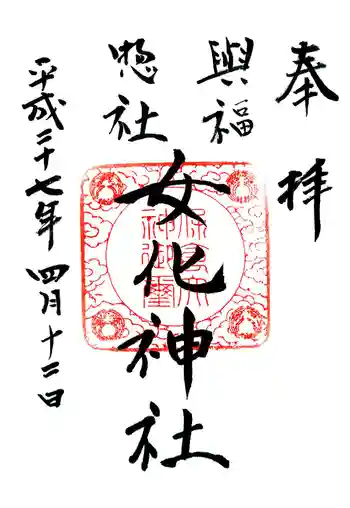 奉拝
與福
惣社
女化神社
保食大
神御璽
平成二十七年 四月十二日